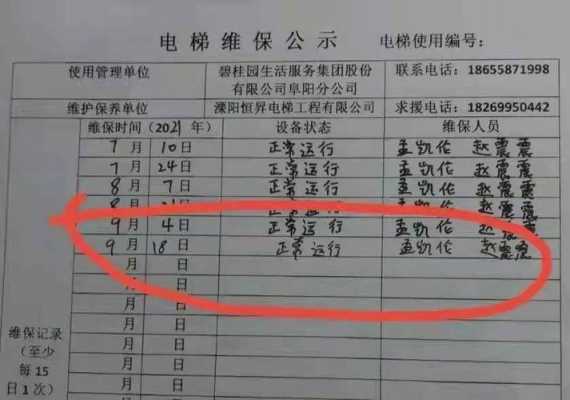 电梯维保公示 电梯使用编号:
使用管理单位 碧桂园生活服务集团股份有限公司阜阳分公司 联系电话:18655871998
维护保养单位 溧阳恒昇电梯工程有限公司 求援电话:18269950442
维保时间(2021年) 设备状态 维保人员
7月10日 正常运行 孟凯伦 赵震震
7月24日 正常运行 孟凯伦 赵震震
8月7日 正常运行 孟凯伦 赵震震
8月21日 正常运行 孟凯伦 赵震震
9月4日 正常运行 孟凯伦 赵震震
9月18日 正常运行 孟凯伦 赵震震
月 日
月 日
月 日
月 日
月 日
月 日
月 日
维保记录
(至少
每15
日1次)